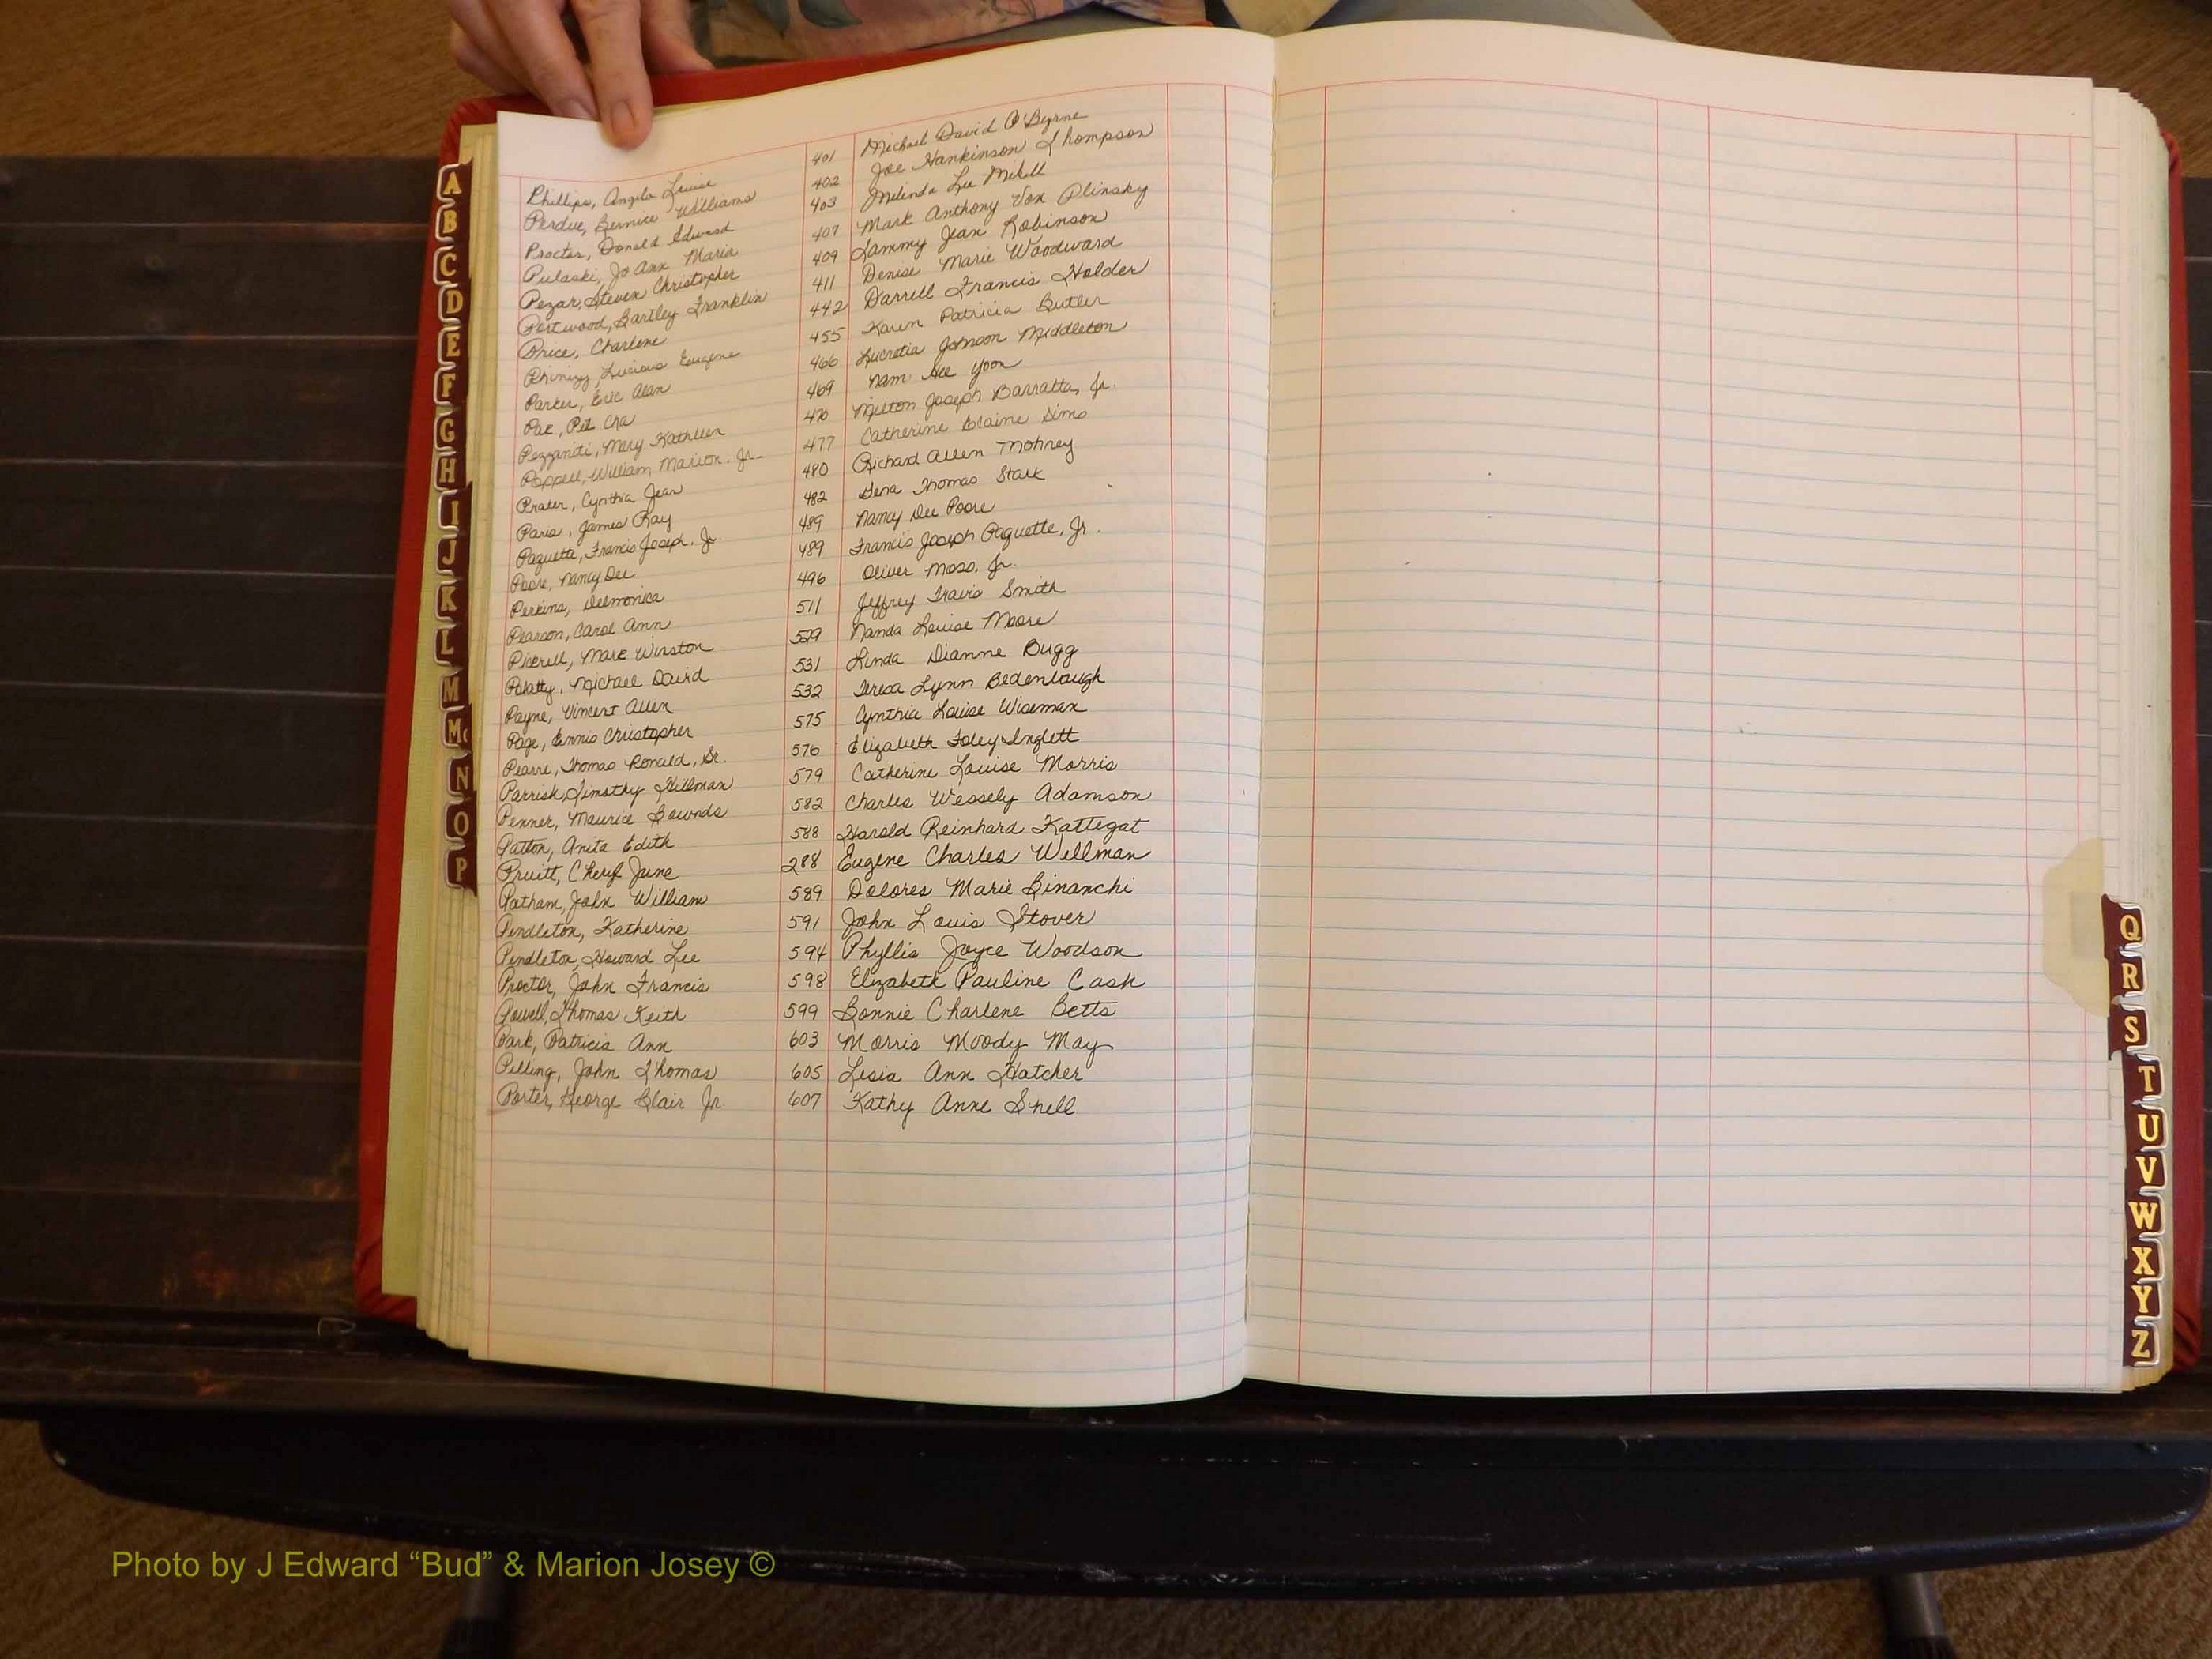 Phillips, Angela Louise 401 Michael David O'Byrne
Perdue, Bernice Williams 402 Joe Hankinson Thompson
Proctor, Donald Edward 403 Melinda Lee Mikell
Pulaski, Jo Ann Maria 407 Mark Anthony Von Plinsky
Pezar, Steven Christopher 409 Tammy Jean Robinson
Partwood, Bartley Franklin 411 Denise Marie Woodward
Price, Charlene 442 Darrell Francis Holder
Phinizy, Lucious Eugene 455 Karen Patricia Butler
Parker, Eric Alan 466 Lucretia Johnson Middleton
Pae, Pil Cha 469 Nam Hee Yoon
Pezzaniti, Mary Kathleen 470 Milton Joseph Barratta, Jr.
Poppell, William Marion, Jr. 477 Catherine Elaine Sims
Prater, Cynthia Jean 480 Richard Allen Mohney
Paris, James Ray 482 Gena Thomas Stark
Paquette, Francis Joseph, Jr 489 Nancy Dee Poore
Poore, Nancy Dee 489 Francis Joseph Paquette, Jr.
Perkins, Delmonica 496 Oliver Moss, Jr.
Pearson, Carol Ann 511 Jeffrey Travis Smith
Pickrell, Marc Winston 529 Nanda Louise Moore
Palatty, Michael David 531 Linda Dianne Bugg
Payne, Vincent Allen 532 Teresa Lynn Bedenbaugh
Page, Ennis Christopher 575 Cynthia Louise Wiseman
Pearre, Thomas Ronald, Sr. 576 Elizabeth Foley Inglett
Parrish, Timothy Hillman 579 Catherine Louise Morris
Penner, Maurice Bounds 582 Charles Wessely Adamson
Patton, Anita Edith 588 Harold Reinhard Kattegat
Pruitt, Cheryl June 288 Eugene Charles Wellman
Patham, John William 589 Dolores Marie Binanchi
Pendleton, Katherine 591 John Louis Stover
Pendleton, Howard Lee 594 Phyllis Joyce Woodson
Proctor, John Francis 598 Elizabeth Pauline Cash
Powell, Thomas Keith 599 Bonnie Charlene Betts
Park, Patricia Ann 603 Morris Moody May
Pilling, John Thomas 605 Lisia Ann Hatcher
Porter, George Blair Jr 607 Kathy Anne Snell
A
B
C
D
E
F
G
H
I
J
K
L
M
Mc
N
O
P
Q
R
S
T
U
V
W
X
Y
Z
Photo by J Edward “Bud” & Marion Josey ©